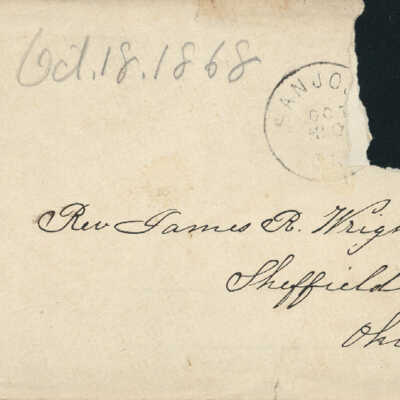 Oct. 18. 1868
SAN JO
OCT
Rev James R. Wrig
Sheffield
Ohi